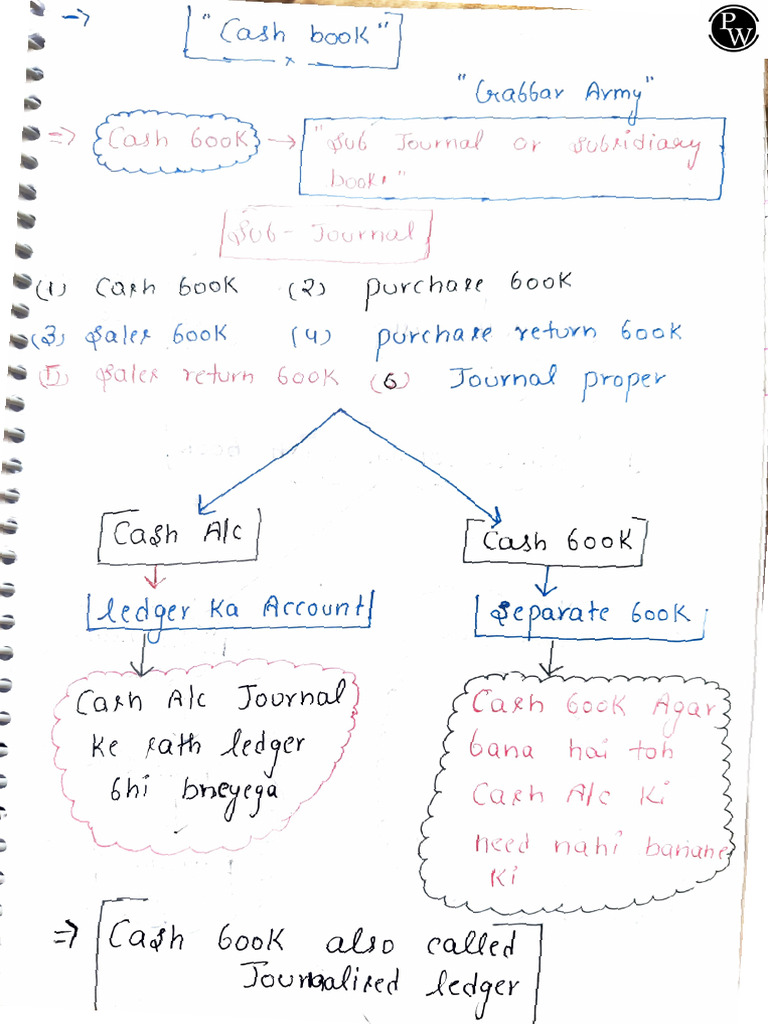 PW
→ "Cash book"
x
"Gabbar Army"
⇒ Cash book → "Sub Journal or subsidiary
book."
Sub-Journal
(1) Cash book (2) purchase book
(3) Sales book (4) purchase return book
(5) Sales return book (6) Journal proper
Cash A/c Cash book
ledger Ka Account Separate book
Cash A/c Journal
Ke sath ledger
bhi bneyega
Cash book Agar
bana hai toh
Cash A/c Ki
need nahi banane
Ki
⇒ Cash book also called
Journalised ledger